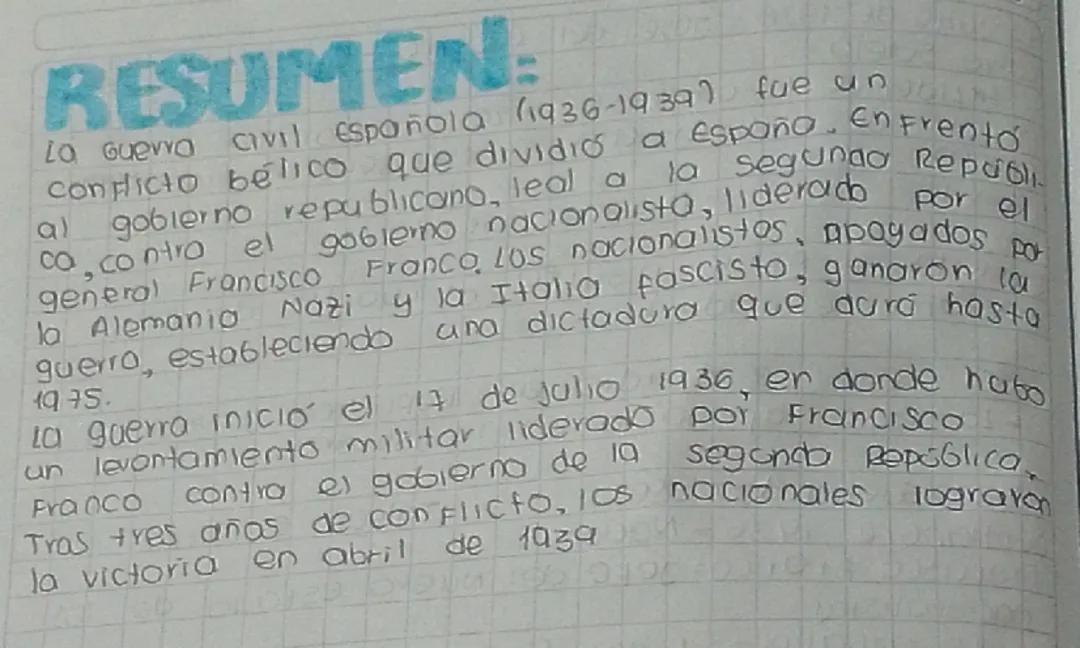 RESUMEN:
La Guerra civil Española (1936-1939) fue un
conflicto bélico que dividió a España. Enfrentó
al gobierno republicano, leal a la segunda Repúbli-
ca, contra el gobierno nacionalista, liderado por el
general Francisco Franco. Los nacionalistas, apoyados por
la Alemania Nazi y la Italia fascista, ganaron la
guerra, estableciendo una dictadura que duró hasta
1975.
La guerra inició el 17 de julio 1936, en donde hubo
un levantamiento militar liderado por Francisco
Franco contra el gobierno de la segunda República.
Tras tres años de conflicto, los nacionales lograron
la victoria en abril de 1939